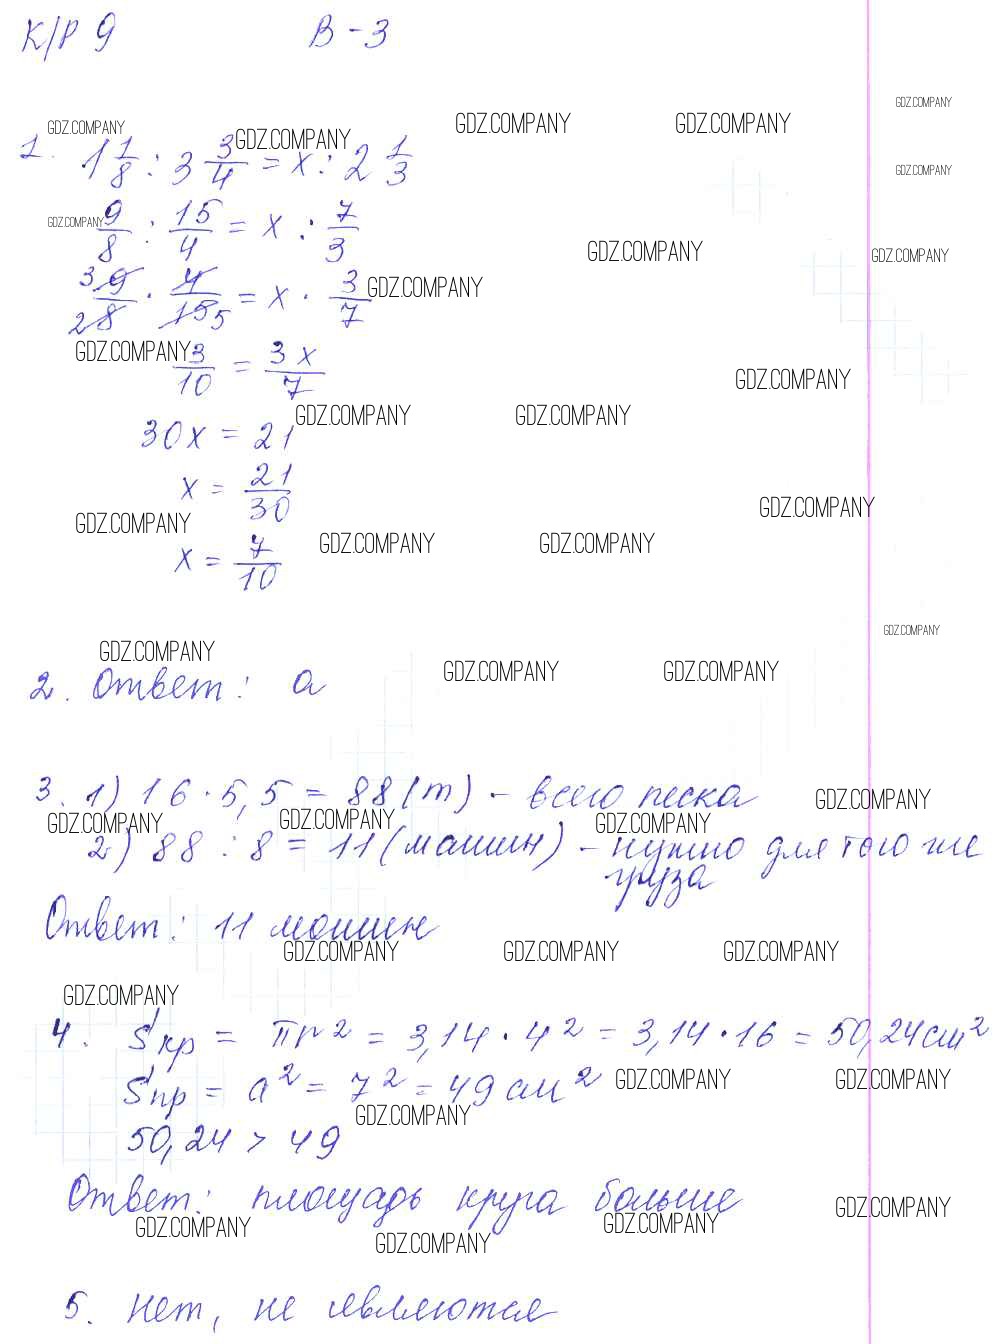 К/Р 9 В-3
GDZ.COMPANY
GDZ.COMPANY GDZ.COMPANY GDZ.COMPANY GDZ.COMPANY
1. 1 1/8 : 3 3/4 = x : 2 1/3
GDZ.COMPANY
GDZ.COMPANY
9/8 : 15/4 = x : 7/3
GDZ.COMPANY GDZ.COMPANY
3 9/8 2 · 4/15 5 = x · 3/7
GDZ.COMPANY
GDZ.COMPANY
3/10 = 3x/7
GDZ.COMPANY
GDZ.COMPANY GDZ.COMPANY
30x = 21
x = 21/30
GDZ.COMPANY
GDZ.COMPANY
GDZ.COMPANY GDZ.COMPANY
x = 7/10
GDZ.COMPANY
GDZ.COMPANY
GDZ.COMPANY GDZ.COMPANY
2. Ответ: а
3. 1) 16 · 5,5 = 88 (т) - всего песка
GDZ.COMPANY
GDZ.COMPANY GDZ.COMPANY GDZ.COMPANY
2) 88 : 8 = 11 (машин) - нужно для того же
груза
Ответ: 11 машин
GDZ.COMPANY GDZ.COMPANY GDZ.COMPANY
GDZ.COMPANY
4. Sкр = πr² = 3,14 · 4² = 3,14 · 16 = 50,24 см²
GDZ.COMPANY GDZ.COMPANY
Sпр = a² = 7² = 49 см²
GDZ.COMPANY
50,24 > 49
Ответ: площадь круга больше
GDZ.COMPANY
GDZ.COMPANY GDZ.COMPANY
GDZ.COMPANY
5. Нет, не являются